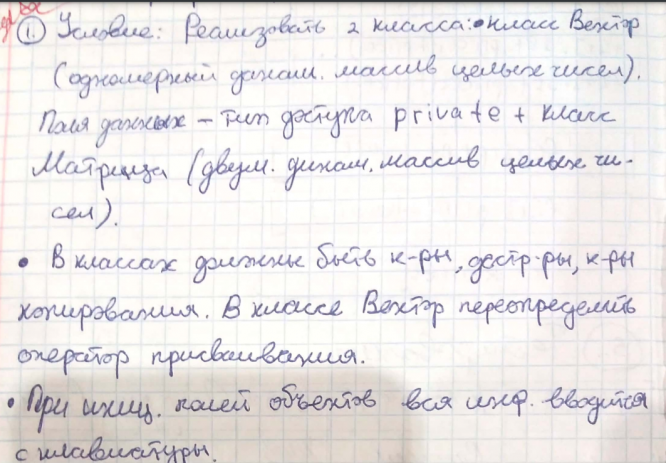 ① Условие: Реализовать 2 класса: • класс Вектор
(одномерный динам. массив целых чисел).
Поля данных – тип доступа private + класс
Матрица (двум. динам. массив целых чи-
сел).
• В классах должны быть к-ры, дестр-ры, к-ры
копирования. В классе Вектор переопределить
оператор присваивания.
• При иниц. полей объектов вся инф. вводится
с клавиатуры.